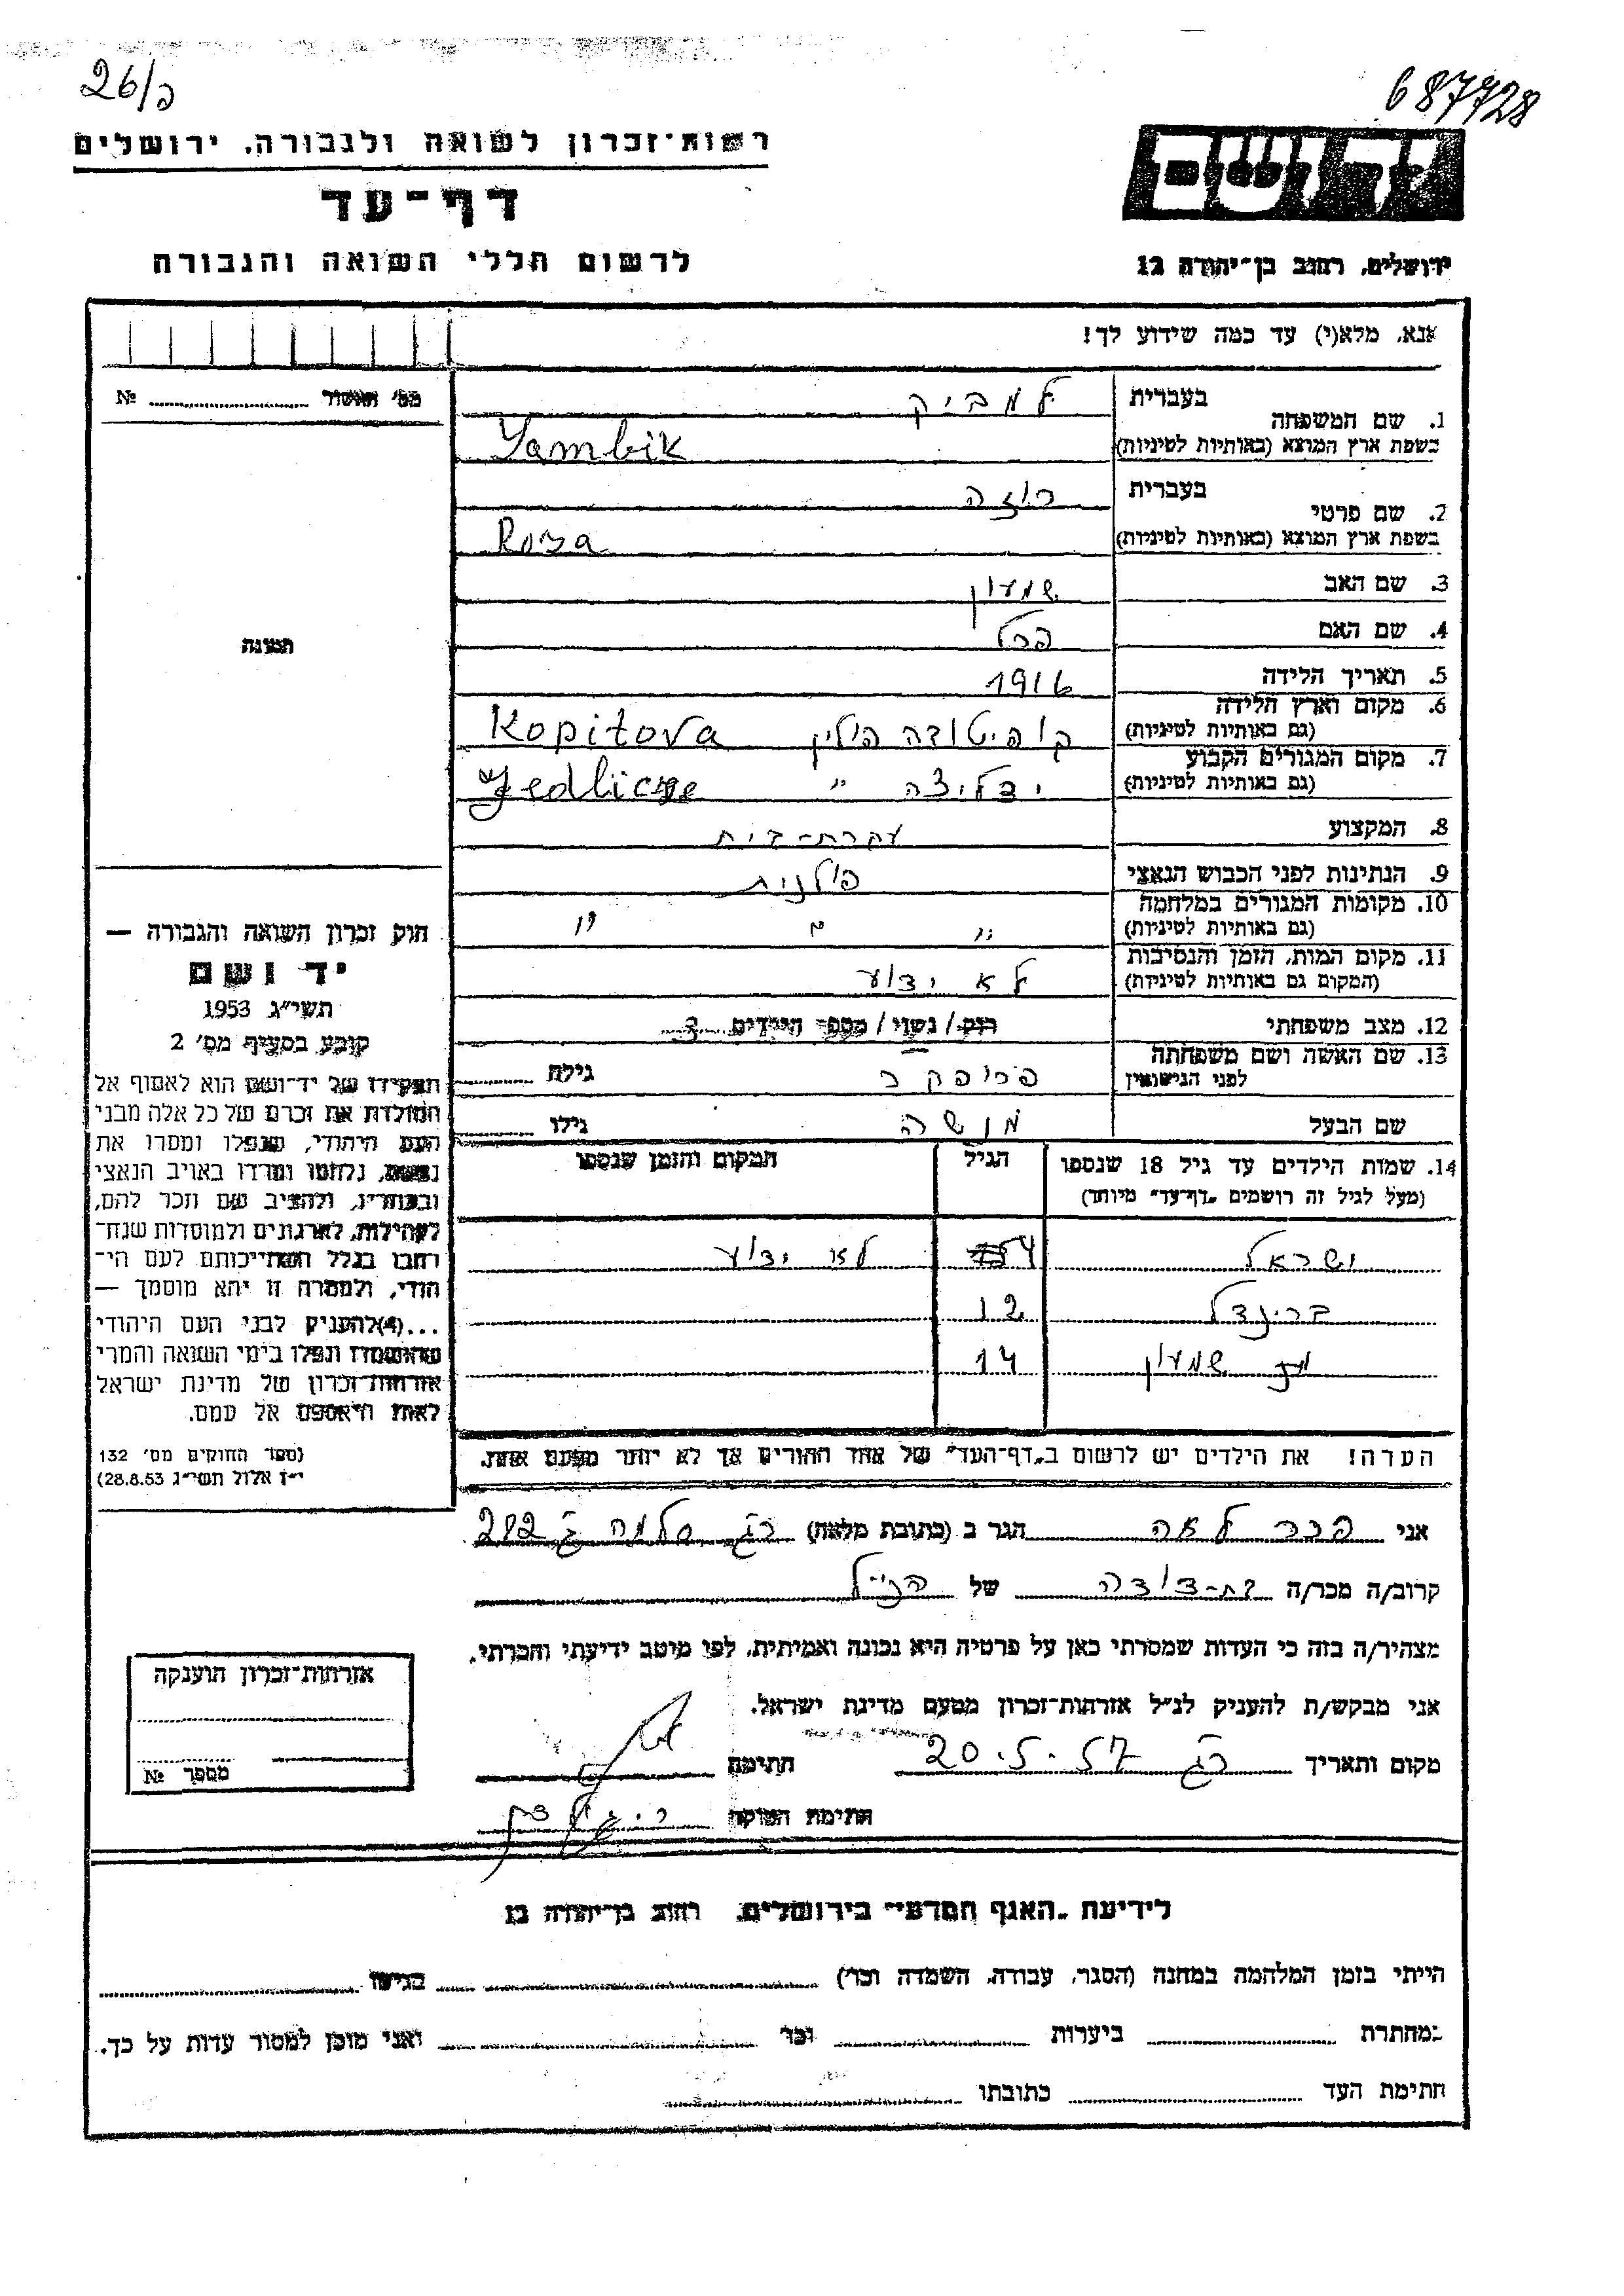 26/פ
687728
רשות־זכרון לשואה ולגבורה, ירושלים
יד ושם
דף־עד
לרשום חללי השואה והגבורה
ירושלים, רחוב בן־יהודה 12
אנא, מלא(י) עד כמה שידוע לך!
מס' האשור № 
1. שם המשפחה
בעברית למביק
בשפת ארץ המוצא (באותיות לטיניות) Lambik
2. שם פרטי
בעברית רוזה
בשפת ארץ המוצא (באותיות לטיניות) Roza
3. שם האב שמעון
4. שם האם פרל
תמונה
5. תאריך הלידה 1916
6. מקום וארץ הלידה
(גם באותיות לטיניות) קופיטובה פולין Kopitova
7. מקום המגורים הקבוע
(גם באותיות לטיניות) ידליצה " Jedlicze
8. המקצוע עקרת-בית
9. הנתינות לפני הכבוש הנאצי פולנית
10. מקומות המגורים במלחמה
(גם באותיות לטיניות) " " "
11. מקום המות, הזמן והנסיבות
(המקום גם באותיות לטיניות) לא ידוע
12. מצב משפחתי רוק/ נשוי/ מספר הילדים 3
13. שם האשה ושם משפחתה
לפני הנישואין גילה
שם הבעל מנשה גילו
14. שמות הילדים עד גיל 18 שנספו
(מעל לגיל זה רושמים "דף־עד" מיוחד)
הגיל
המקום והזמן שנספו
ישראל לא ידוע
בריינדל 12
שמעון 14
הערה! את הילדים יש לרשום ב"דף־העד" של אחד ההורים אך לא יותר מפעם אחת.
חוק זכרון השואה והגבורה —
יד ושם
תשי"ג 1953
קובע בסעיף מס' 2
תפקידו של יד־ושם הוא לאסוף אל
המולדת את זכרם של כל אלה מבני
העם היהודי, שנפלו ומסרו את
נפשם, נלחמו ומרדו באויב הנאצי
ובעוזריו, ולהציב שם וזכר להם,
לקהילות, לארגונים ולמוסדות שנח־
רבו בגלל השתייכותם לעם הי־
הודי, ולמטרה זו יהא מוסמך —
...(4)להעניק לבני העם היהודי
שהושמדו ונפלו בימי השואה והמרי
אזרחות־זכרון של מדינת ישראל
לאות היאספם אל עמם.
(ספר החוקים מס' 132
י"ז אלול תשי"ג 28.8.53)
אני לאה הגר ב (כתובת מלאה) רג סלמה ג 212
קרוב/ה מכר/ה בת-דודה של הנ"ל
מצהיר/ה בזה כי העדות שמסרתי כאן על פרטיה היא נכונה ואמיתית, לפי מיטב ידיעתי והכרתי.
אני מבקש/ת להעניק לנ"ל אזרחות־זכרון מטעם מדינת ישראל.
מקום ותאריך רג 20.5.57 חתימה
חתימת הפוקד
אזרחות־זכרון הוענקה
מספר №
לידיעת "האגף המדעי" בירושלים, רחוב בן־יהודה 12
הייתי בזמן המלחמה במחנה (הסגר, עבודה, השמדה וכו') בגיטו
במחתרת ביערות וכו' ואני מוכן למסור עדות על כך.
חתימת העד כתובתו